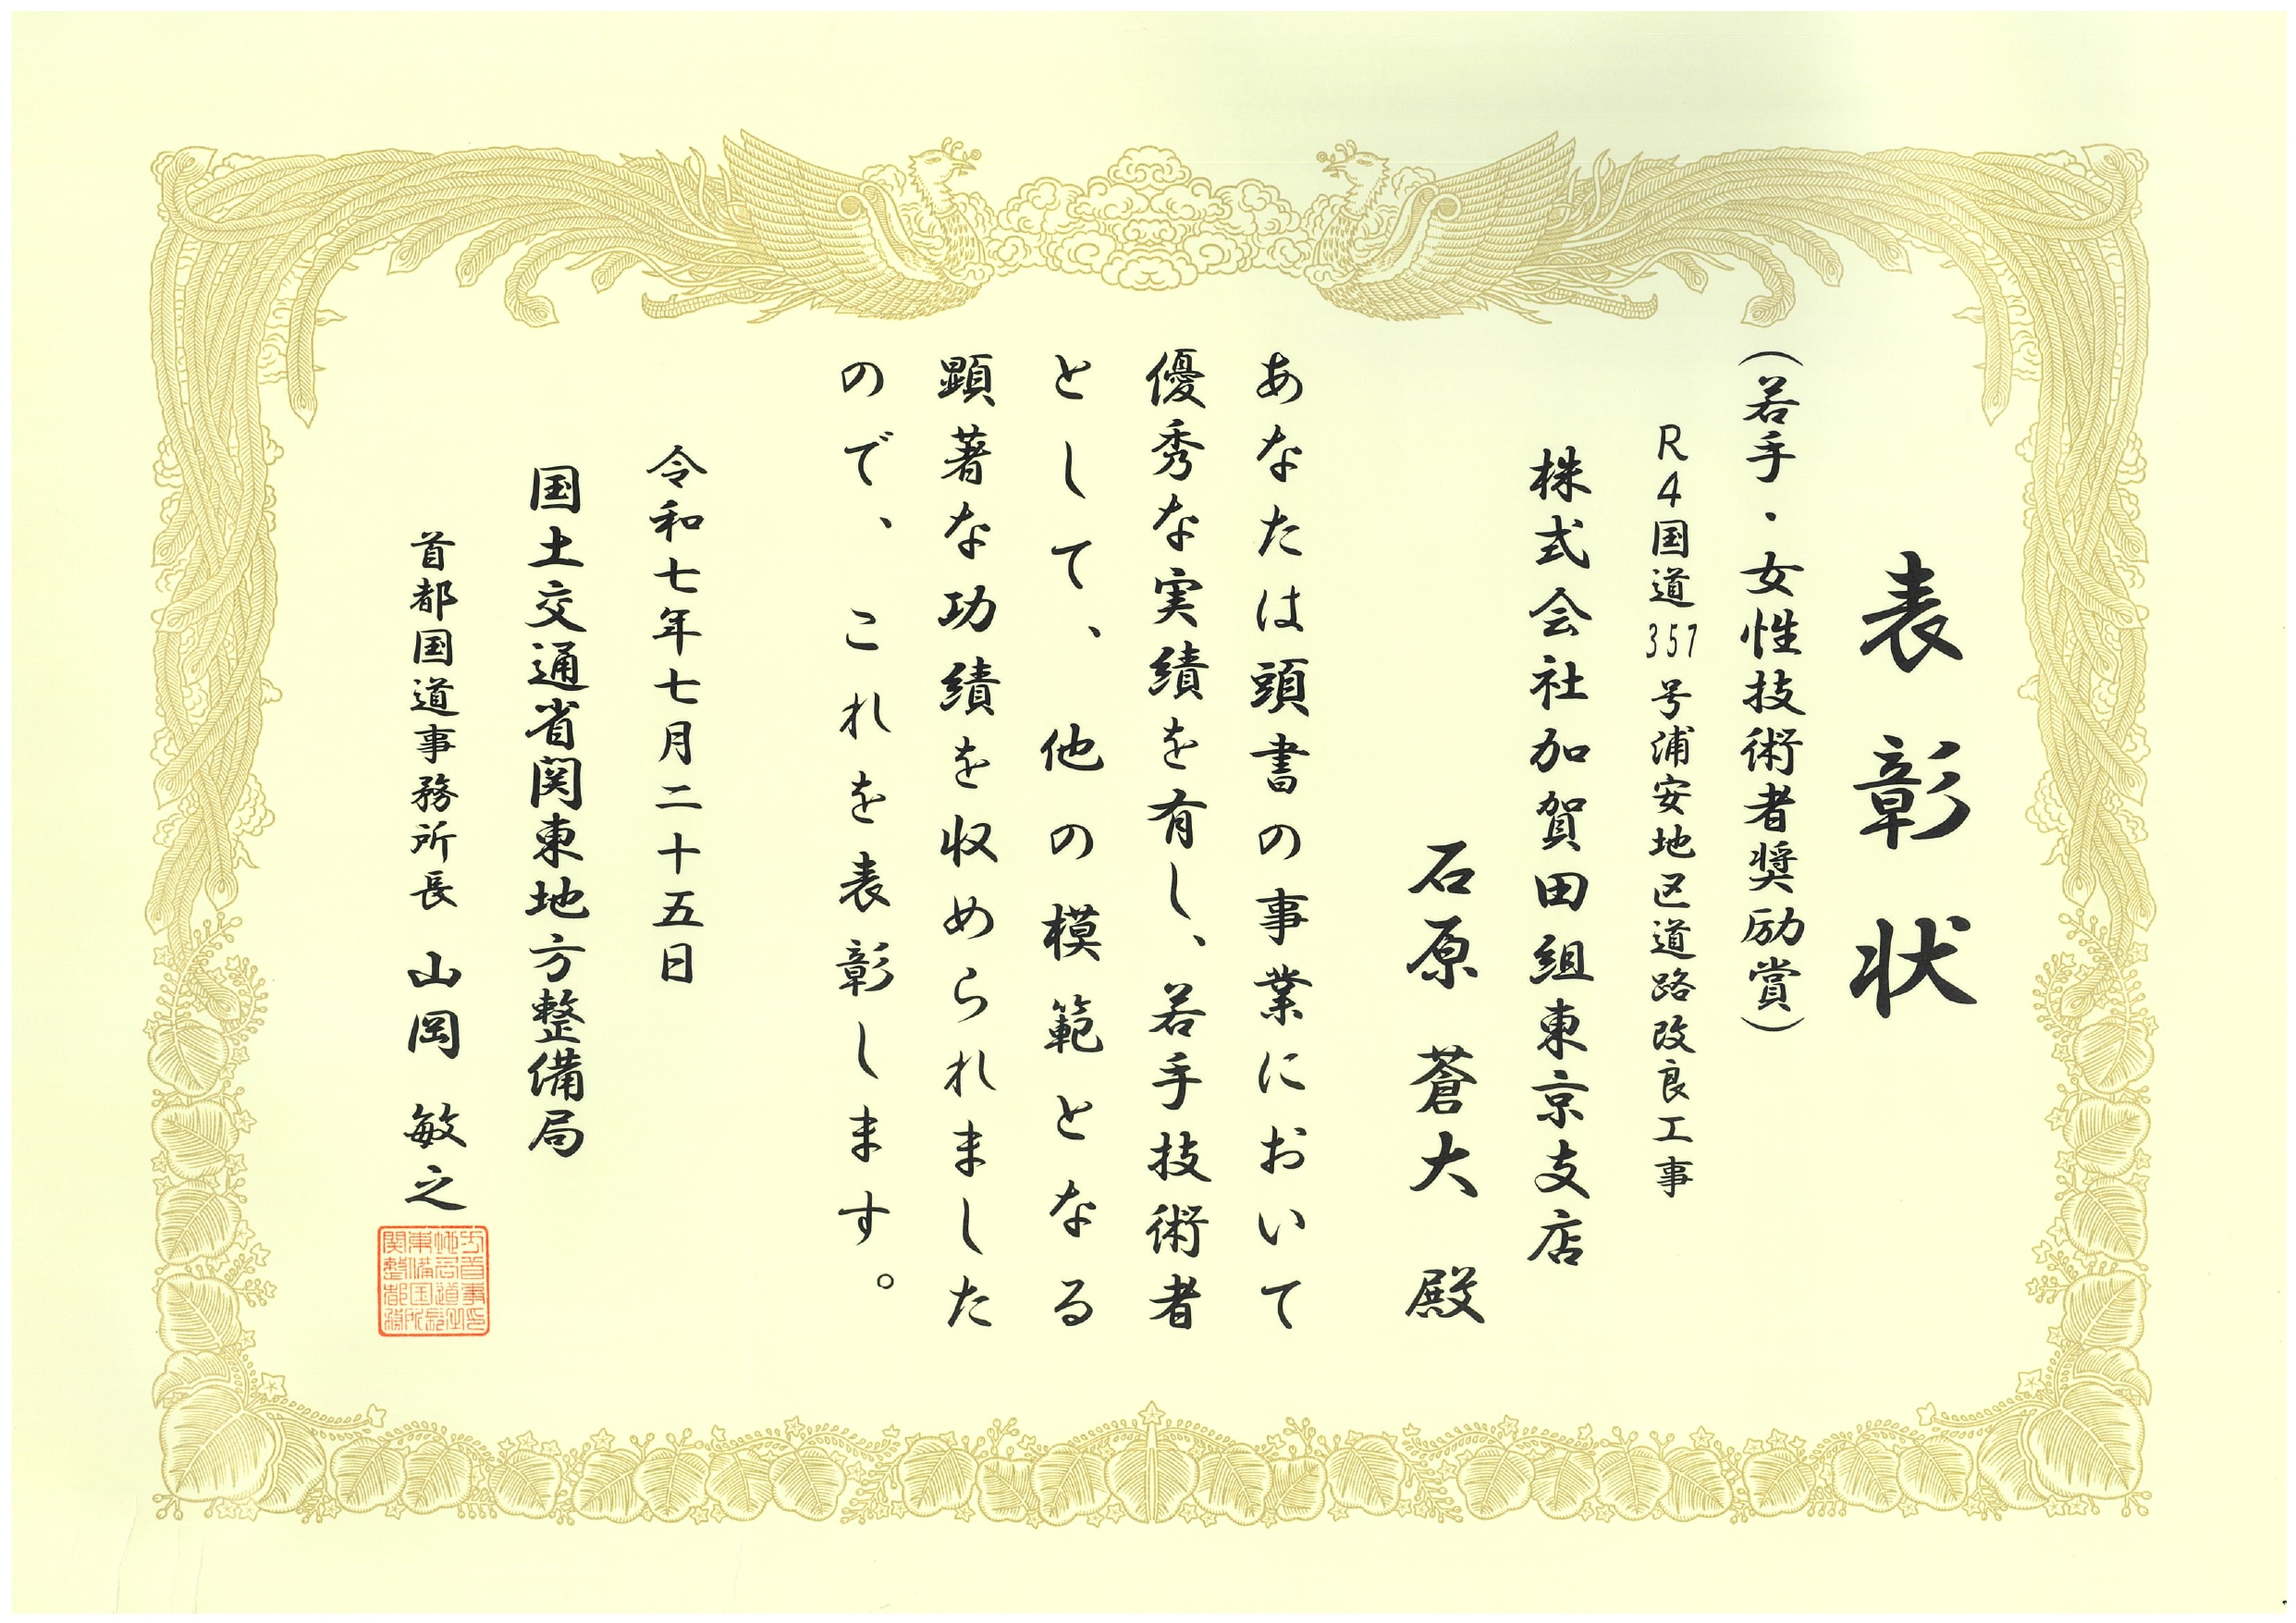 表彰状
（若手・女性技術者奨励賞）
R4国道357号浦安地区道路改良工事
株式会社加賀田組東京支店
石原 蒼大 殿
あなたは頭書の事業において
優秀な実績を有し、若手技術者
として、他の模範となる
顕著な功績を収められました
ので、これを表彰します。
令和七年七月二十五日
国土交通省関東地方整備局
首都国道事務所長 山岡 敏之